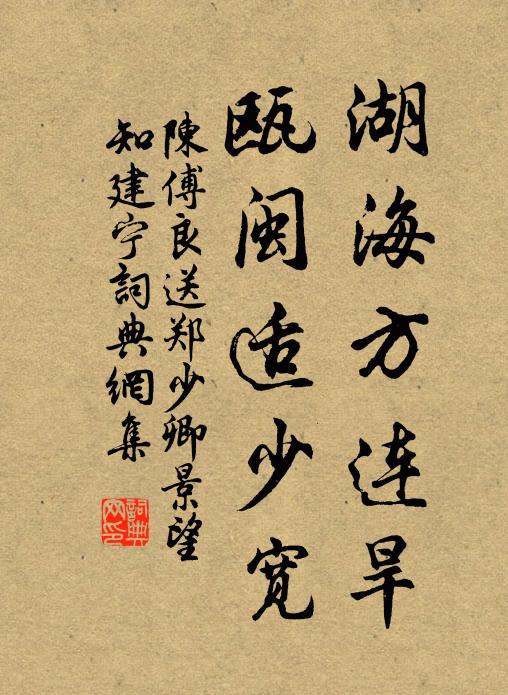 湖海方连旱
瓯闽适少宽
陳傅良送郑少卿景望
知建宁詞典網集
詞典
网印